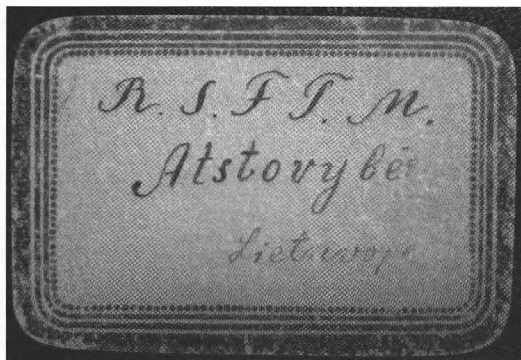 R. S. F T. M.
Atstovybė
Lietuvoje